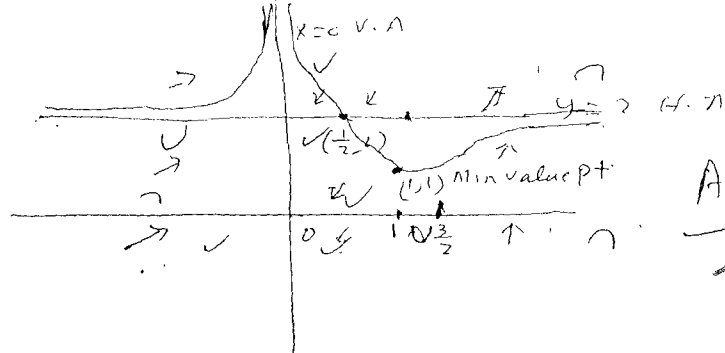 x=0 V.A
y=2 H.A
(1/2, )
(1,1) Min value pt.
A
0 1 3/2